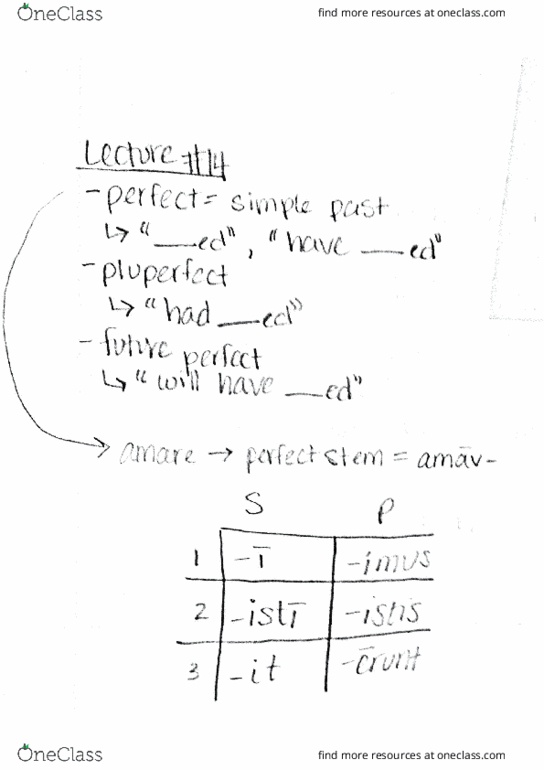 OneClass find more resources at oneclass.com
Lecture #14
- perfect = simple past
↳ "___ed", "have ___ed"
- pluperfect
↳ "had ___ed"
- future perfect
↳ "will have ___ed"
amare → perfect stem = amāv-
S P
1 -ī -imus
2 -istī -istis
3 -it -ērunt
OneClass find more resources at oneclass.com